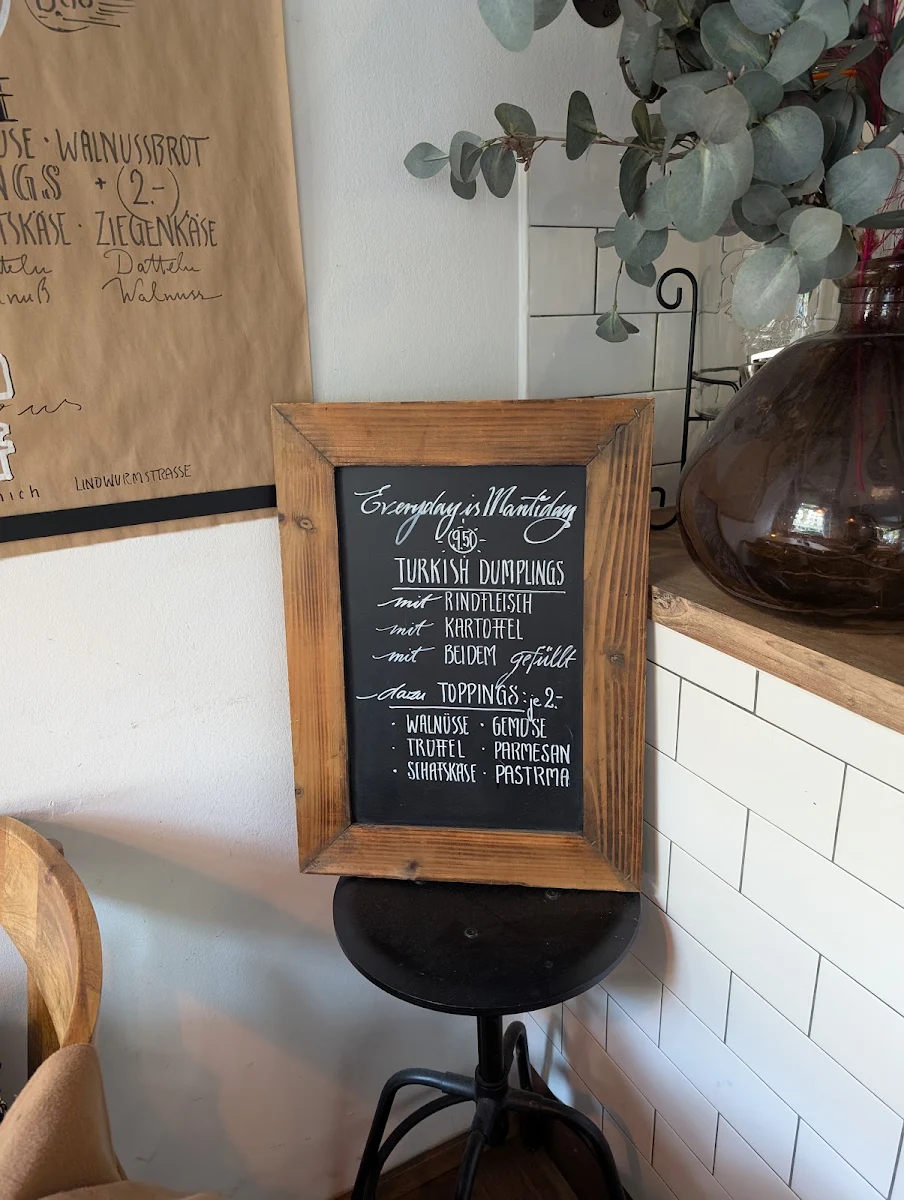 WALNUSSBROT
+ 2.-
ZIEGENKÄSE
Datteln
Walnuss
LINDWURMSTRASSE
Everyday is Mantiday
9.50
TURKISH DUMPLINGS
mit RINDFLEISCH
mit KARTOFFEL
mit BEIDEM gefüllt
dazu TOPPINGS: je 2.-
· WALNÜSSE · GEMÜSE
· TRÜFFEL · PARMESAN
· SCHAFSKÄSE · PASTRMA